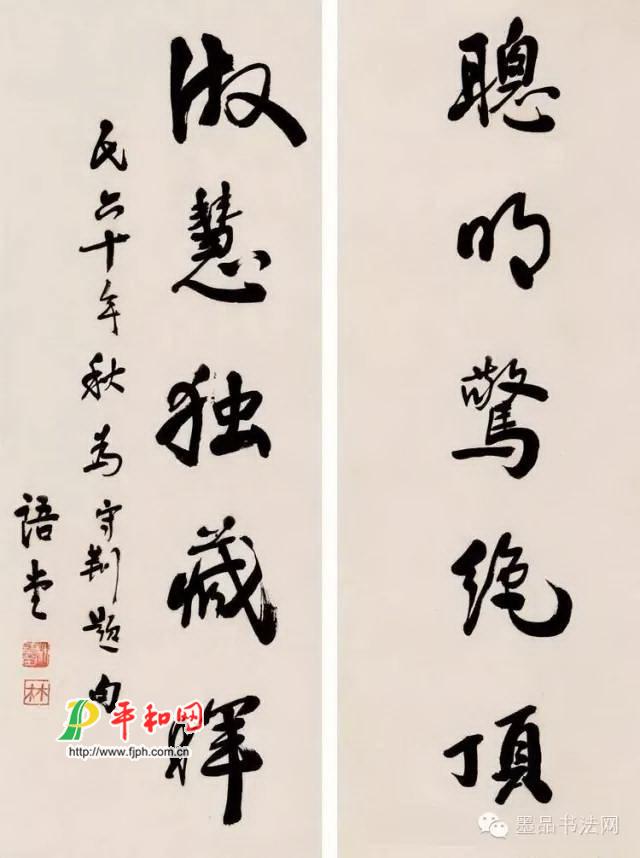 聰明驚绝頂
淑慧独藏輝
民六十年秋为守荆题句
语堂
林
平和网
http://www.fjph.com.cn
墨品书法网